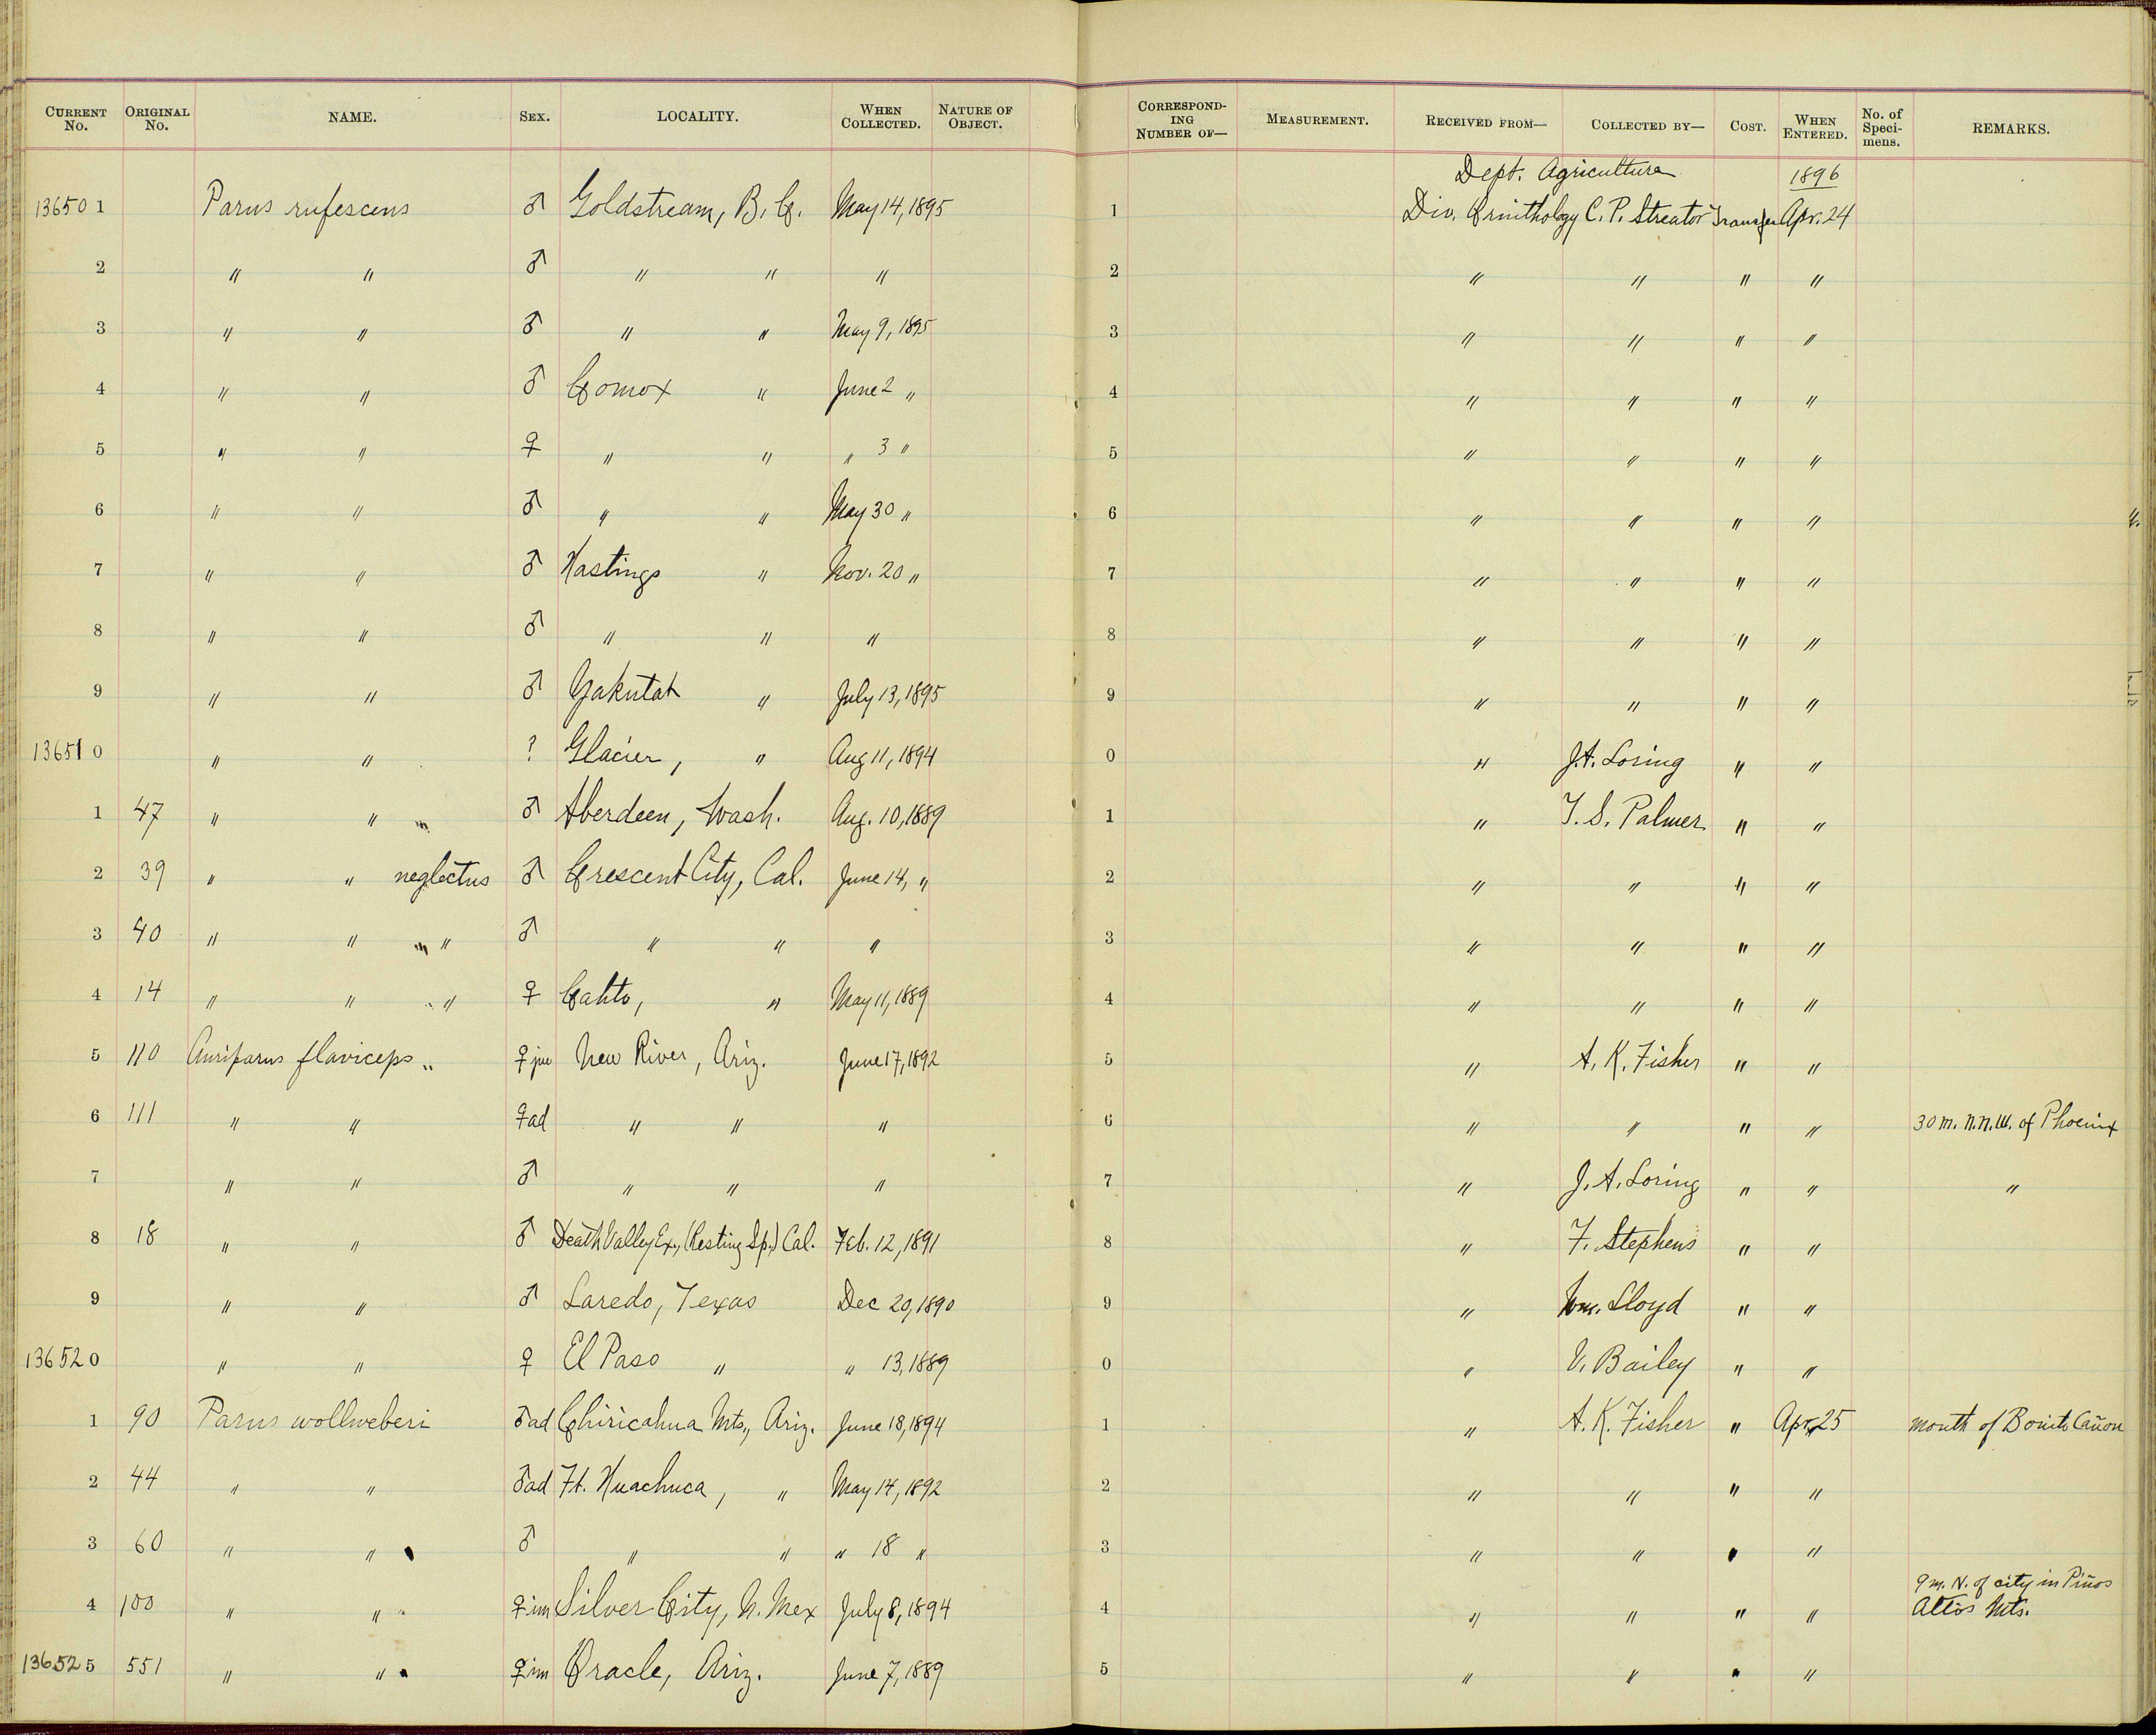 CURRENT No. ORIGINAL No. NAME. SEX. LOCALITY. WHEN COLLECTED. NATURE OF OBJECT. CORRESPONDING NUMBER OF— MEASUREMENT. RECEIVED FROM— COLLECTED BY— COST. WHEN ENTERED. No. of Specimens. REMARKS.
Dept. Agriculture 1896
136501 Parus rufescens ♂ Goldstream, B. C. May 14, 1895 1 Div. Ornithology C. P. Streator Transfer Apr. 24
2 " " ♂ " " " 2 " " " "
3 " " ♂ " " May 9, 1895 3 " " " "
4 " " ♂ Comox " June 2 " 4 " " " "
5 " " ♀ " " " 3 " 5 " " " "
6 " " ♂ " " May 30 " 6 " " " "
7 " " ♂ Hastings " Nov. 20 " 7 " " " "
8 " " ♂ " " " 8 " " " "
9 " " ♂ Yakutat " July 13, 1895 9 " " " "
136510 " " ? Glacier, " Aug 11, 1894 0 " J. A. Loring " "
1 47 " " ♂ Aberdeen, Wash. Aug. 10, 1889 1 " T. S. Palmer " "
2 39 " " neglectus ♂ Crescent City, Cal. June 14, " 2 " " " "
3 40 " " " ♂ " " " 3 " " " "
4 14 " " " ♀ Cahto, " May 11, 1889 4 " " " "
5 110 Auriparus flaviceps ♀ juv New River, Ariz. June 17, 1892 5 " A. K. Fisher " "
6 111 " " ♀ ad " " " 6 " " " " 30 m. N.N.W. of Phoenix
7 " " ♂ " " " 7 " J. A. Loring " " "
8 18 " " ♂ Death Valley Ex., (Resting Sp.) Cal. Feb. 12, 1891 8 " F. Stephens " "
9 " " ♂ Laredo, Texas Dec 20, 1890 9 " Wm. Lloyd " "
136520 " " ♀ El Paso " " 13, 1889 0 " V. Bailey " "
1 90 Parus wollweberi ♂ ad Chiricahua Mts., Ariz. June 18, 1894 1 " A. K. Fisher " Apr. 25 mouth of Bonito Cañon
2 44 " " ♂ ad Ft. Huachuca, " May 14, 1892 2 " " " "
3 60 " " ♂ " " " 18 " 3 " " " "
9 m. N. of city in Piños
4 100 " " ♀ im Silver City, N. Mex July 8, 1894 4 " " " " Altos Mts.
136525 551 " " ♀ im Oracle, Ariz. June 7, 1889 5 " " " "